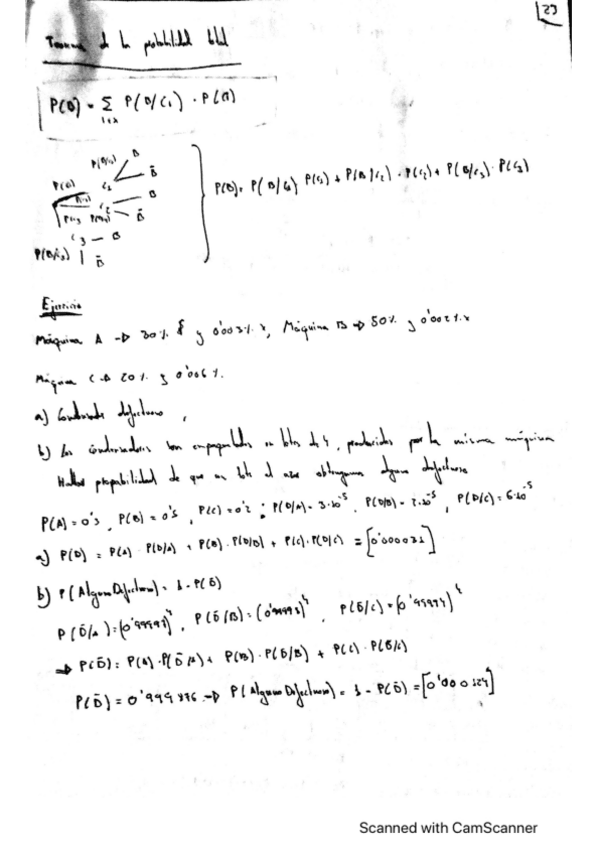 29
Teorema de la probabilidad total
P(B) = Σ P(B/Ci) · P(Ci)
P(B/C1) B
P(C1) C1 B̄
C2 B
B̄
C3 — B
P(B/C3) B̄
P(B) = P(B/C1) P(C1) + P(B/C2) · P(C2) + P(B/C3) · P(C3)
Ejercicio
Máquina A → 30% y 0'003%, Máquina B → 50% y 0'002%
Máquina C → 20% y 0'006%.
a) Condensador defectuoso
b) Los condensadores son empaquetados en lotes de 4, producidos por la misma máquina
Hallar probabilidad de que un lote al azar obtengamos alguno defectuoso
P(A) = 0'3, P(B) = 0'5, P(C) = 0'2 ; P(D/A) = 3·10⁻⁵, P(D/B) = 2·10⁻⁵, P(D/C) = 6·10⁻⁵
a) P(D) = P(A) · P(D/A) + P(B) · P(D/B) + P(C) · P(D/C) = [0'000031]
b) P(Alguno Defectuoso) = 1 - P(D̄)
P(D̄/A) = (0'99997)⁴, P(D̄/B) = (0'99998)⁴, P(D̄/C) = (0'99994)⁴
⇒ P(D̄) = P(A) · P(D̄/A) + P(B) · P(D̄/B) + P(C) · P(D̄/C)
P(D̄) = 0'999876 → P(Alguno Defectuoso) = 1 - P(D̄) = [0'000124]
Scanned with CamScanner